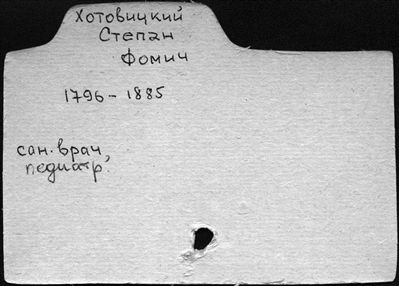 Хотовицкий
Степан
Фомич
1796 - 1885
сан. врач,
педиатр.